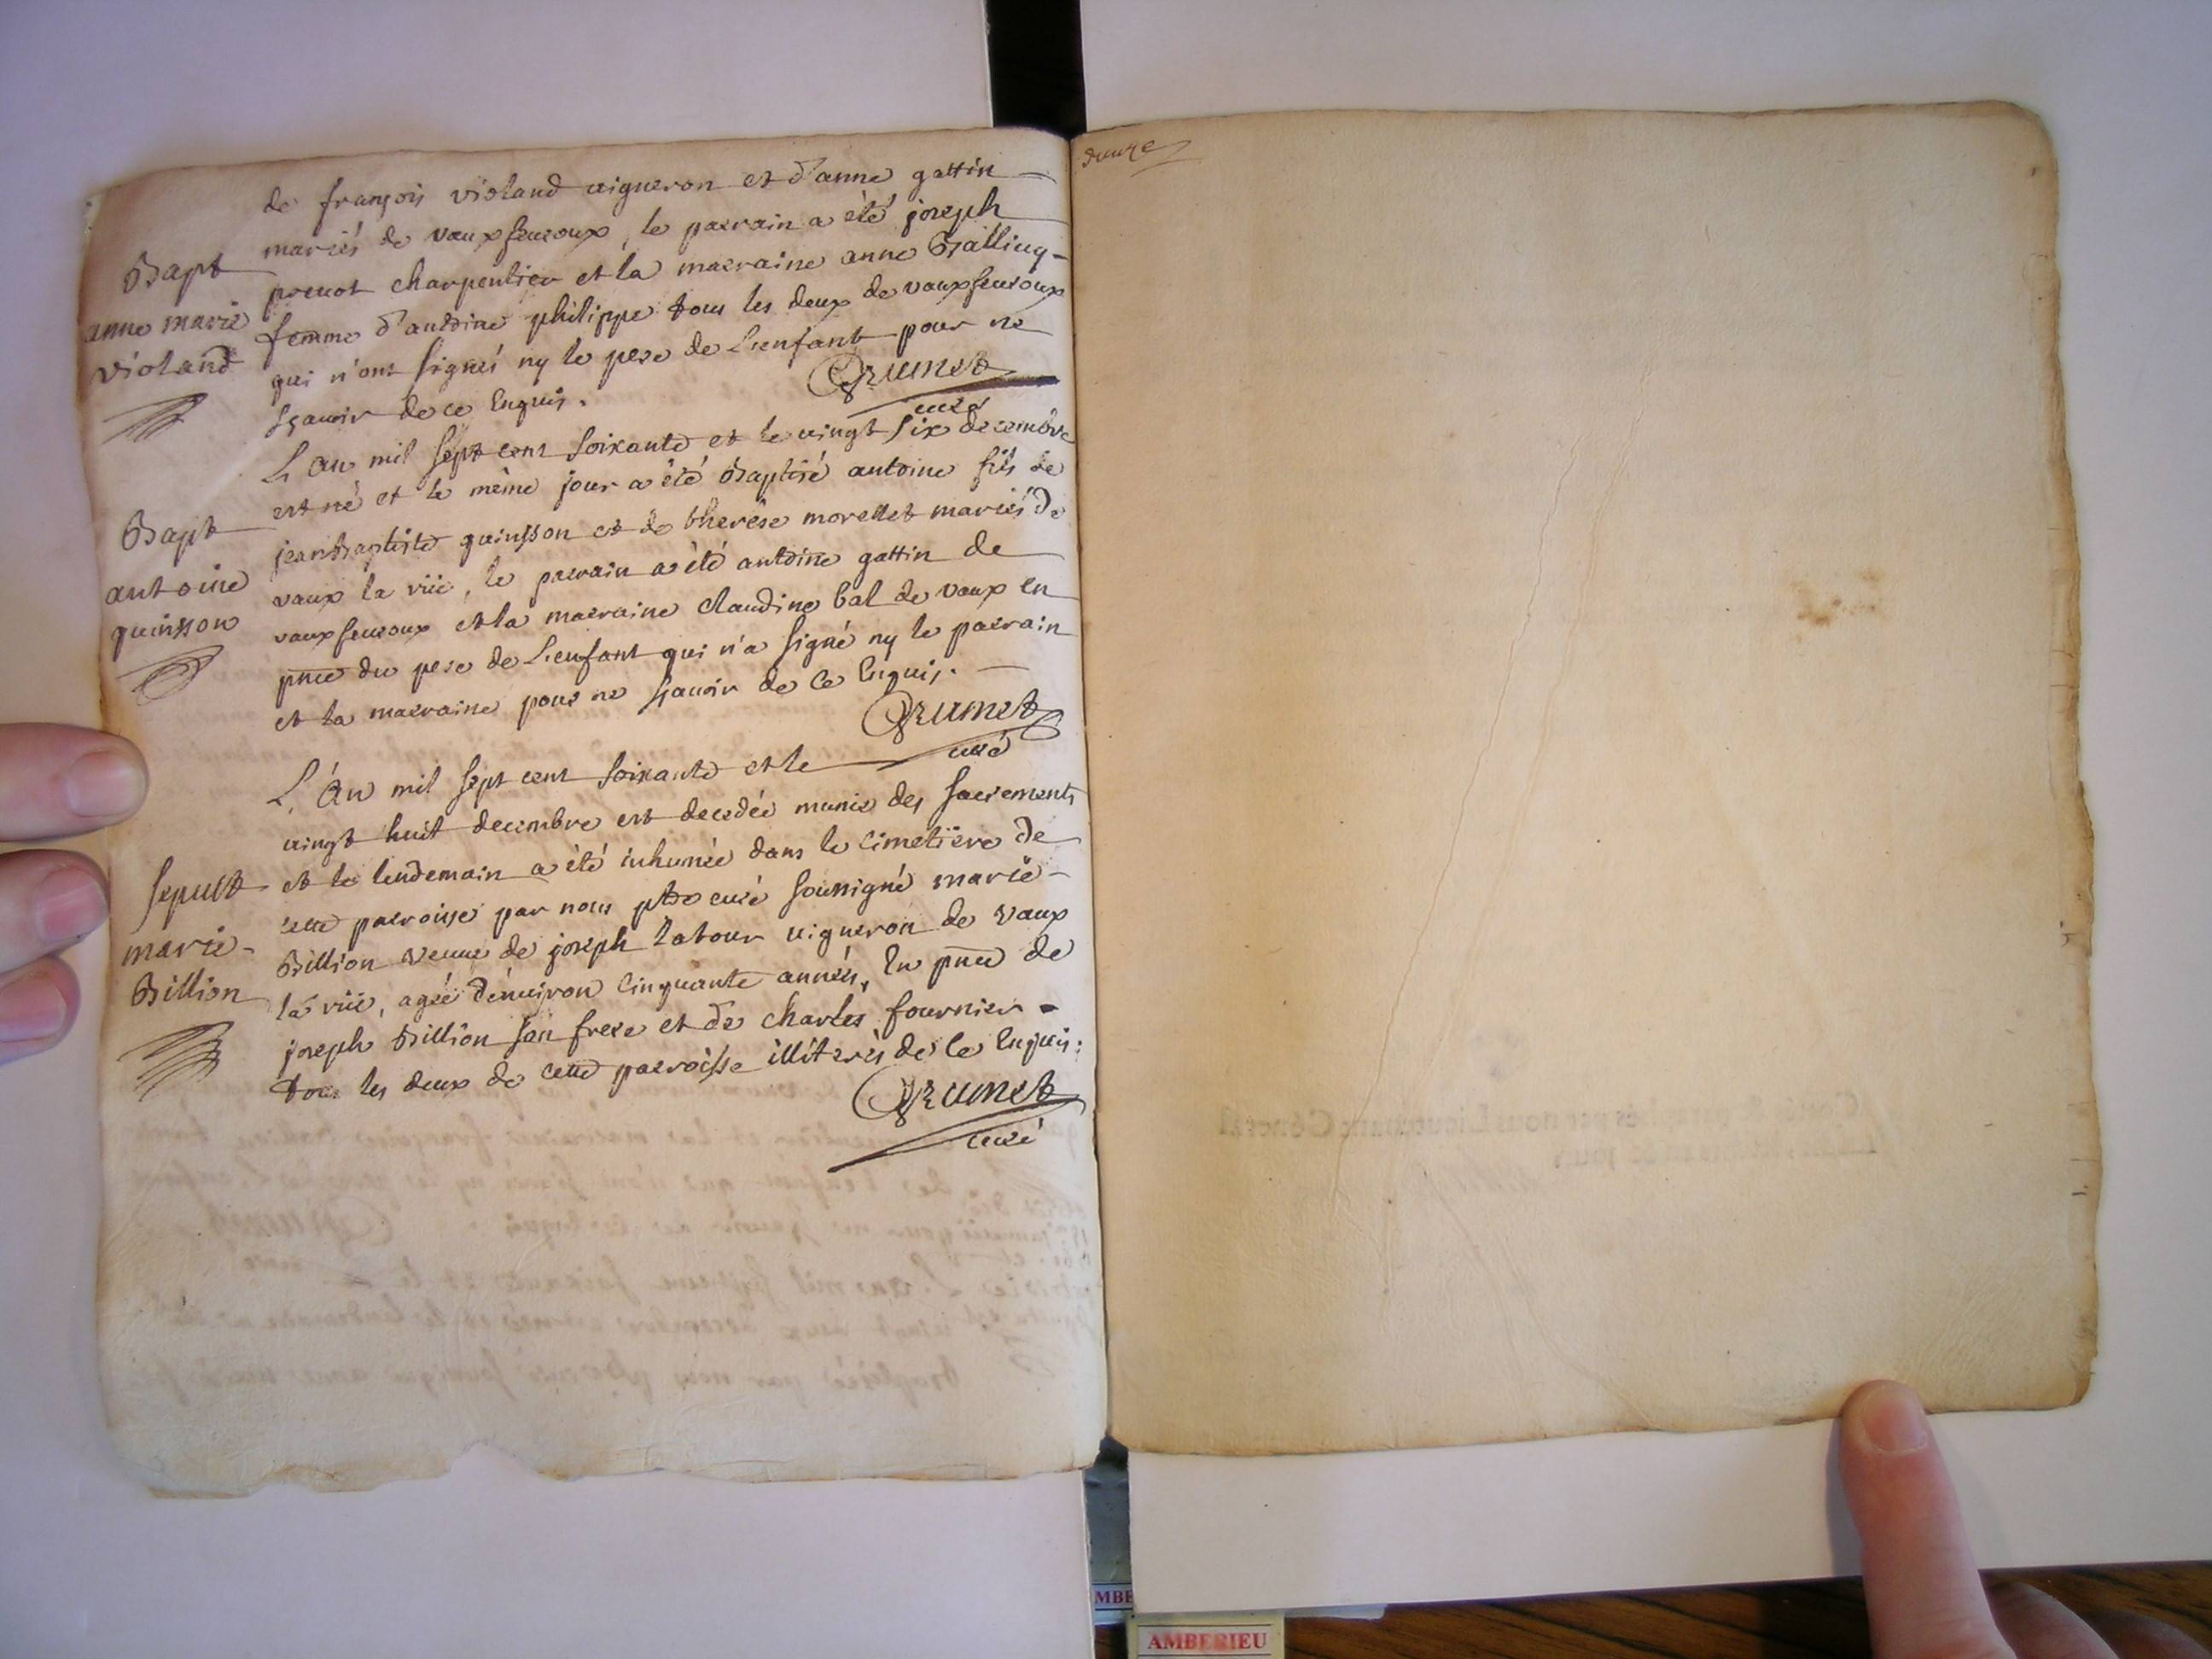 de françois violand vigneron et d'anne gattin
mariés de vauxfeuroux, le parrain a été joseph
Bapt
prevot charpentier et la marraine anne Balling-
anne marie
femme d'antoine philippe tous les deux de vauxfeuroux
violand
qui n'ont signés ny le pere de L'enfant pour ne
sçavoir de ce Enquis.
Grumet
curé
L'an mil sept cent soixante et le vingt six decembre
est né et le même jour a été Baptisé antoine fils de
Bapt
jeanBaptiste quinsson et de therèse morellet mariés de
antoine
vaux la vüe, le parrain a été antoine gattin de
quinsson
vauxfeuroux et la marraine claudine bal de vaux en
pnce du pere de L'enfant qui n'a signé ny le parrain
et la marraine pour ne sçavoir de ce Enquis.
Grumet
curé
L'An mil sept cent soixante et le
vingt huit decembre est decedée munie des sacrements
et le lendemain a été inhumée dans le cimetiere de
sepult
cette parroisse par nous ptre curé soussigné marie-
marie-
Billion veuve de joseph latour vigneron de vaux
Billion
la vüe, agée d'environ cinquante années, En pnce de
joseph Billion son frere et de charles fournier
tous les deux de cette parroisse illiterés de ce Enquis:
Grumet
curé
douze
MBE
AMBERIEU